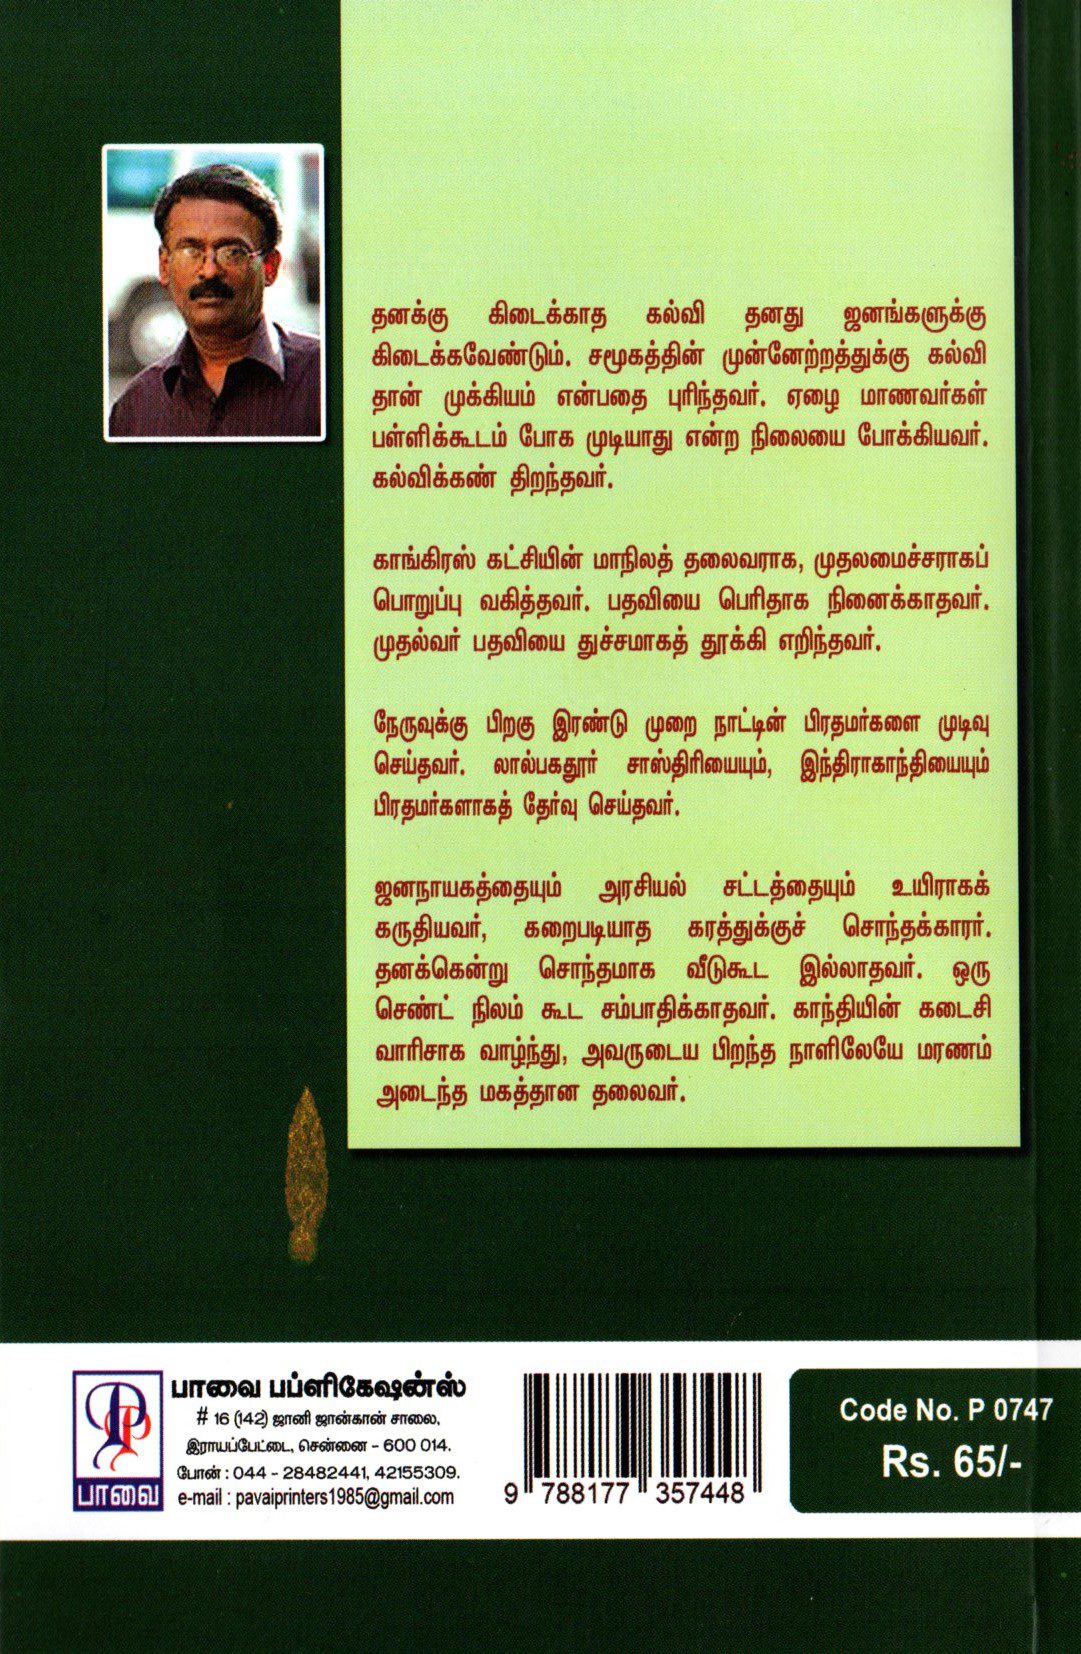 தனக்கு கிடைக்காத கல்வி தனது ஜனங்களுக்கு
கிடைக்கவேண்டும். சமூகத்தின் முன்னேற்றத்துக்கு கல்வி
தான் முக்கியம் என்பதை புரிந்தவர். ஏழை மாணவர்கள்
பள்ளிக்கூடம் போக முடியாது என்ற நிலையை போக்கியவர்.
கல்விக்கண் திறந்தவர்.
காங்கிரஸ் கட்சியின் மாநிலத் தலைவராக, முதலமைச்சராகப்
பொறுப்பு வகித்தவர். பதவியை பெரிதாக நினைக்காதவர்.
முதல்வர் பதவியை துச்சமாகத் தூக்கி எறிந்தவர்.
நேருவுக்கு பிறகு இரண்டு முறை நாட்டின் பிரதமர்களை முடிவு
செய்தவர். லால்பகதூர் சாஸ்திரியையும், இந்திராகாந்தியையும்
பிரதமர்களாகத் தேர்வு செய்தவர்.
ஜனநாயகத்தையும் அரசியல் சட்டத்தையும் உயிராகக்
கருதியவர், கறைபடியாத கரத்துக்குச் சொந்தக்காரர்.
தனக்கென்று சொந்தமாக வீடுகூட இல்லாதவர். ஒரு
செண்ட் நிலம் கூட சம்பாதிக்காதவர். காந்தியின் கடைசி
வாரிசாக வாழ்ந்து, அவருடைய பிறந்த நாளிலேயே மரணம்
அடைந்த மகத்தான தலைவர்.
PP
பாவை
பாவை பப்ளிகேஷன்ஸ்
# 16 (142) ஜானி ஜான்கான் சாலை,
இராயப்பேட்டை, சென்னை - 600 014.
போன் : 044 - 28482441, 42155309.
e-mail : pavaiprinters1985@gmail.com
9 788177 357448
Code No. P 0747
Rs. 65/-